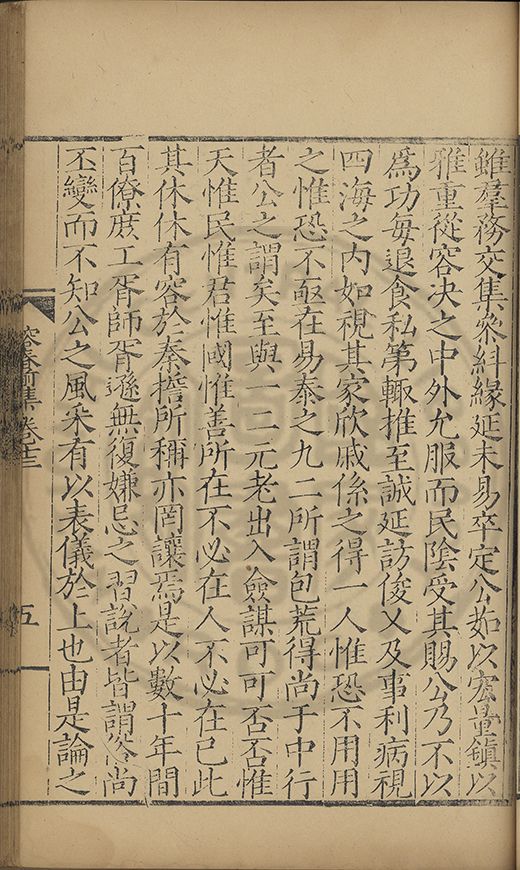 雖羣務交集棼糾緣延未易卒定公茹以宏量鎮以
雅重從容决之中外允服而民陰受其賜公乃不以
爲功每退食私第輙推至誠延訪俊乂及事利病視
四海之内如視其家欣戚係之得一人惟恐不用用
之惟恐不亟在易泰之九二所謂包荒得尚于中行
者公之謂矣至與一二元老出入僉謀可可否否惟
天惟民惟君惟國惟善所在不必在人不必在已此
其休休有容於秦誓所稱亦罔讓焉是以數十年間
百僚庶工胥師胥遜無復嫌忌之習說者皆謂俗尚
丕變而不知公之風釆有以表儀於上也由是論之
容春前集卷十三
五